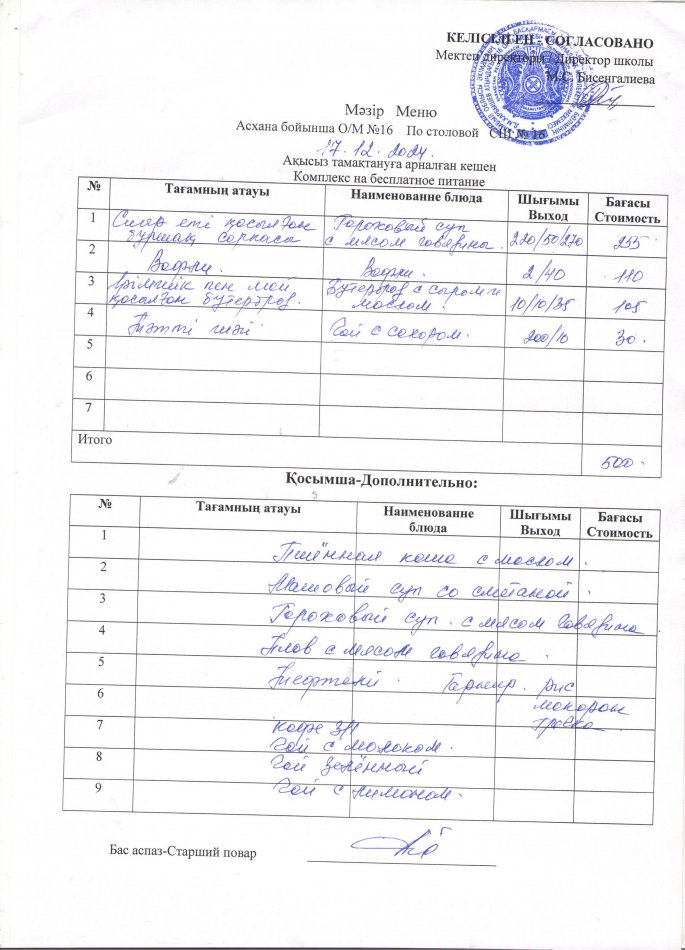 КЕЛІСІЛГЕН - СОГЛАСОВАНО
Мектеп директоры Директор школы
М.С. Бисенгалиева
Мәзір Меню
Асхана бойынша О/М №16 По столовой СШ № 16
17.12.2024.
Ақысыз тамақтануға арналған кешен
Комплекс на бесплатное питание
№ Тағамның атауы Наименованне блюда Шығымы Выход Бағасы Стоимость
1 Сиыр еті қосылған бұршақ сорпасы Гороховый суп с мясом говядины. 220/50/270 255
2 Вафли. Вафли. 2/40 110
3 Ірімшік пен май қосалған бутерброд. Бутерброд с сыром и маслом. 10/10/35 105
4 Тәтті шәй Чай с сахаром. 200/10 30.
5
6
7
Итого
500.
Қосымша-Дополнительно:
№ Тағамның атауы Наименованне блюда Шығымы Выход Бағасы Стоимость
1 Пшённая каша с маслом.
2 Машовый суп со сметаной.
3 Гороховый суп. с мясом говядина
4 Плов с мясом говядина.
5 Гарнир. рис
6 макароны
гречка
7 кофе 3/1
Чай с молоком.
8 Чай зелённый
9 Чай с лимоном.
Бас аспаз-Старший повар